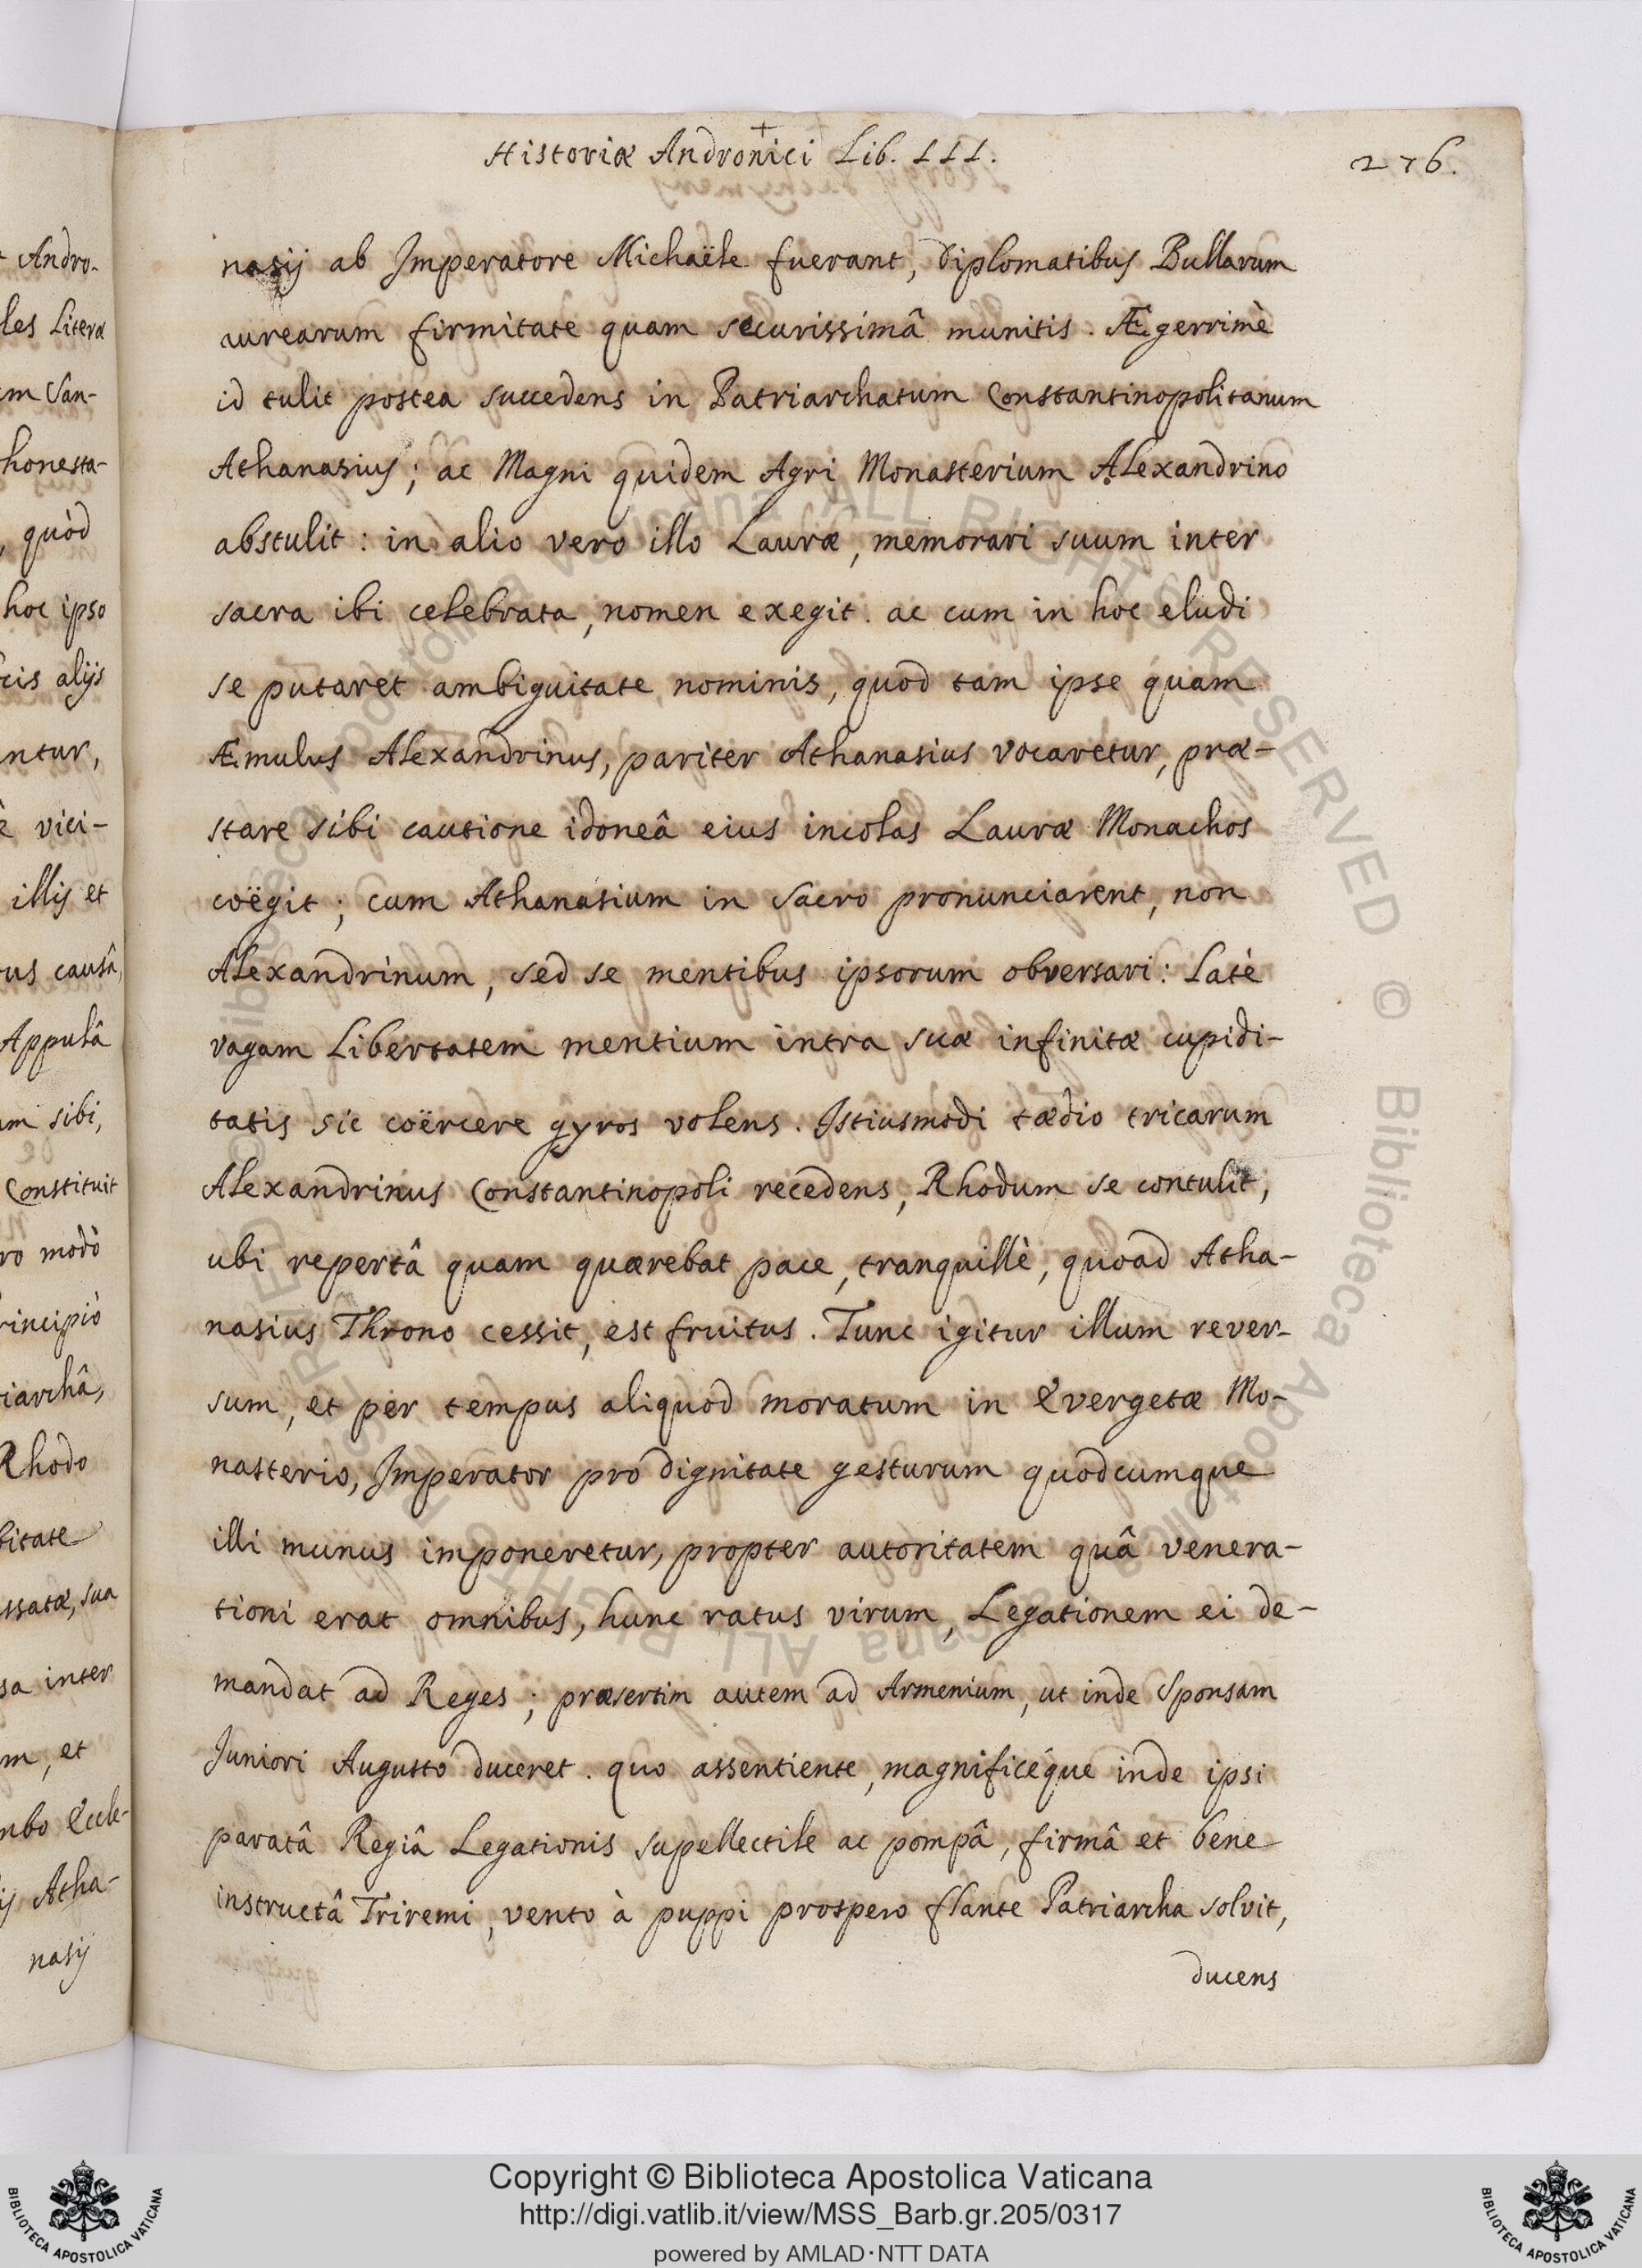 Historiæ Andronici Lib. III.
276.
nasij ab Imperatore Michaële fuerant, diplomatibus Bullarum
aurearum firmitate quam securissimâ munitis. Ægerrimè
id tulit postea succedens in Patriarchatum Constantinopolitanum
Athanasius; ac Magni quidem Agri Monasterium Alexandrino
abstulit: in alio vero illo Lauræ, memorari suum inter
sacra ibi celebrata, nomen exegit. ac cum in hoc eludi
se putaret ambiguitate nominis, quod tam ipse quam
Æmulus Alexandrinus, pariter Athanasius vocaretur, præ-
stare sibi cautione idoneâ eius incolas Lauræ Monachos
coëgit; cum Athanasium in Sacro pronunciarent, non
Alexandrinum, sed se mentibus ipsorum obversari: Latè
vagam Libertatem mentium intra suæ infinitæ cupidi-
tatis sic coërcere gyros volens. Istiusmodi tædio tricarum
Alexandrinus Constantinopoli recedens, Rhodum se contulit,
ubi repertâ quam quærebat pace, tranquillè, quoad Atha-
nasius Throno cessit, est fruitus. Tunc igitur illum rever-
sum, et per tempus aliquod moratum in Evergetæ Mo-
nasterio, Imperator pro dignitate gesturum quodcumque
illi munus imponeretur, propter autoritatem quâ venera-
tioni erat omnibus, hunc ratus virum, Legationem ei de-
mandat ad Reges; præsertim autem ad Armenium, ut inde Sponsam
Juniori Augusto duceret. quo assentiente, magnificéque inde ipsi
paratâ Regiâ Legationis supellectile ac pompâ, firmâ et bene
instructâ Triremi, vento à puppi prospero flante Patriarcha solvit,
ducens
Andro-
les Literæ
em San-
honesta-
, quòd
hoc ipso
cis alijs
ntur,
è vici-
illis et
us causâ,
Appulâ
um sibi,
Constituit
ro modò
rincipiò
iarchâ,
Rhodo
bitate
ssatæ, sua
sa inter
m, et
mbo Eccle-
ij Atha-
nasij
© Biblioteca Apostolica Vaticana ALL RIGHTS RESERVED
Copyright © Biblioteca Apostolica Vaticana
http://digi.vatlib.it/view/MSS_Barb.gr.205/0317
powered by AMLAD·NTT DATA
BIBLIOTECA APOSTOLICA VATICANA
BIBLIOTECA APOSTOLICA VATICANA